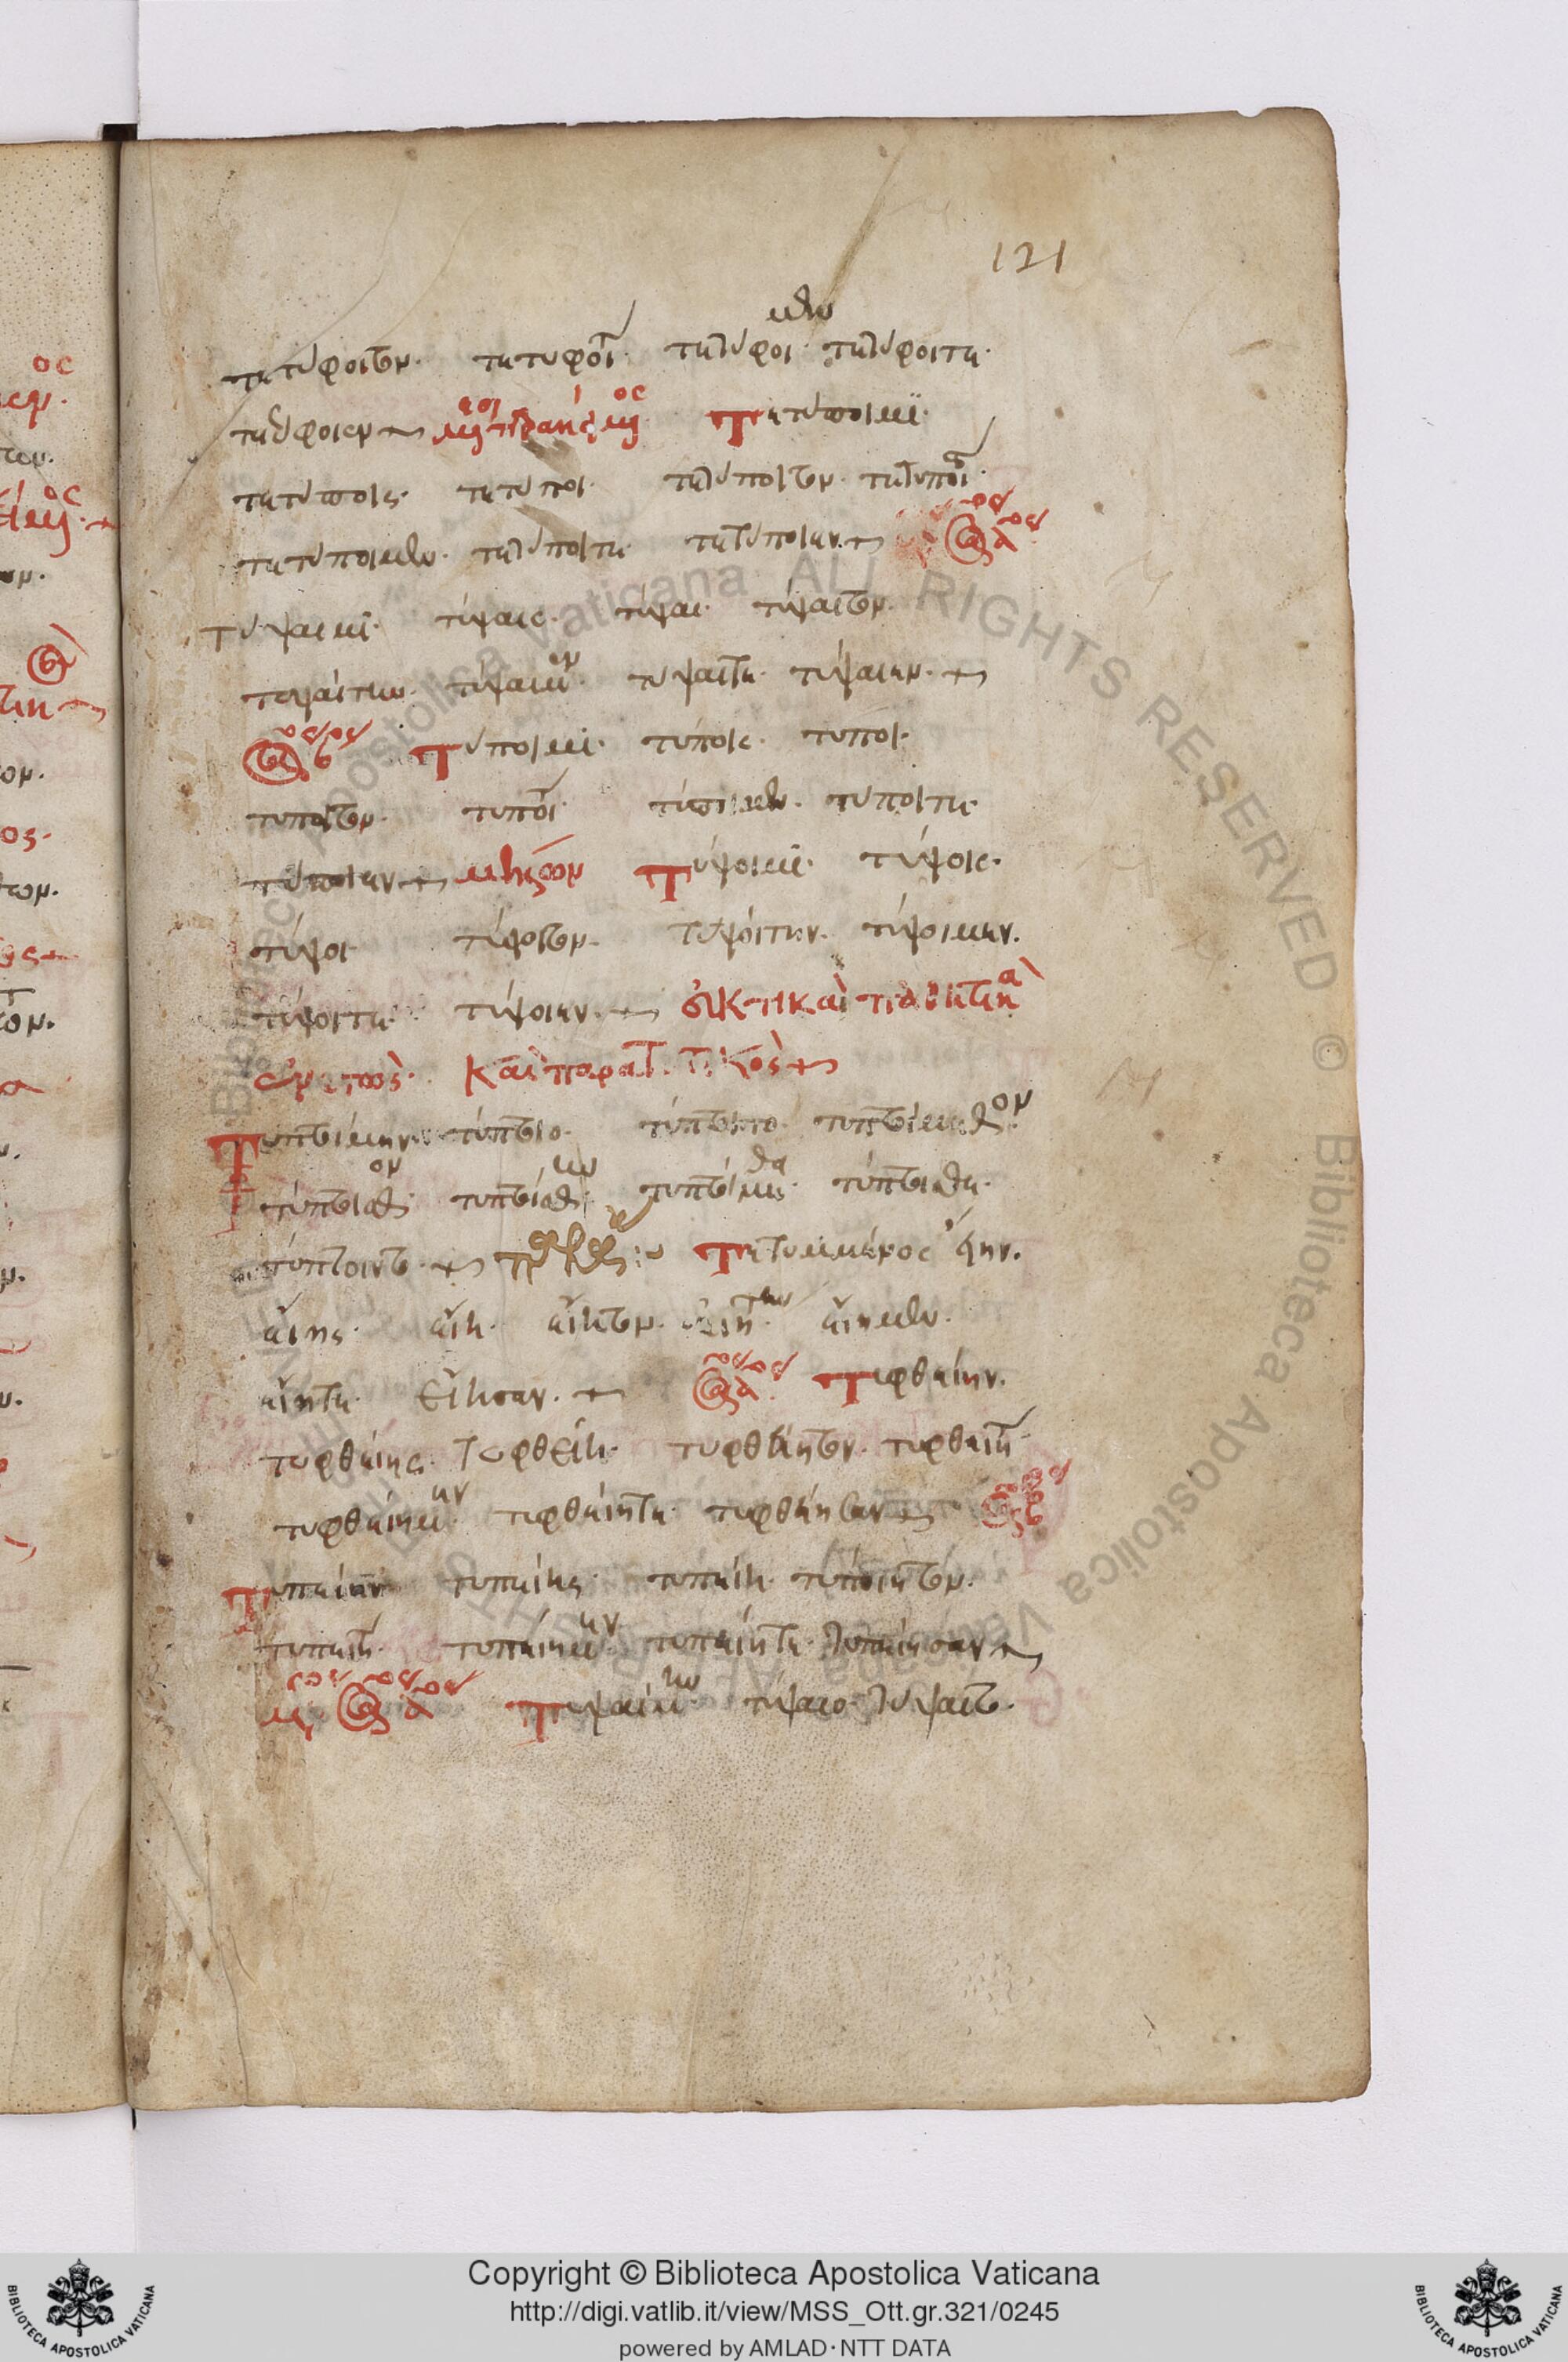 121
τετύφοιτον. τετυφοί τετύφοιμεν τετύφοιτε.
τετύφοιεν μέσος παρακείμενος Τετύποιμι.
τετύποις. τετύποι. τετύποιτον. τετυποί
τετύποιμεν. τετύποιτε τετύποιεν. ἀόριστος α
Τύψαιμι. τύψαις. τύψαι. τύψαιτον.
τυψαίτην. τύψαιμεν τύψαιτε τύψαιεν.
ἀόριστος β Τύποιμι. τύποις. τύποι.
τύποιτον. τυποί τύποιμεν. τύποιτε.
τύποιεν μέλλων Τύψοιμι. τύψοις.
τύψοι τύψοιτον. τυψοίτην. τύψοιμεν.
τύψοιτε τύψοιεν. εὐκτικὰ παθητικὰ
ἐνεστὼς. καὶ παρατατικὸς
Τυπτοίμην τύπτοιο. τύπτοιτο τυπτοίμεθον.
τύπτοισθον τυπτοίσθην τυπτοίμεθα τύπτοισθε.
τύπτοιντο. Τετυμμένος εἴην.
εἴης. εἴη. εἴητον. εἰήτην εἴημεν.
εἴητε εἴησαν. ἀόριστος α Τυφθείην.
τυφθείης. Τυφθείη. τυφθείητον. τυφθειή
τυφθείημεν τυφθείητε τυφθείησαν ἀόριστος β
Τυπείην τυπείης τυπείη. τυπείητον.
τυπειή τυπείημεν τυπείητε. τυπείησαν
μέσος ἀόριστος α Τυψαίμην τύψαιο. τύψαιτο.
Copyright © Biblioteca Apostolica Vaticana
http://digi.vatlib.it/view/MSS_Ott.gr.321/0245
powered by AMLAD · NTT DATA
BIBLIOTECA APOSTOLICA VATICANA
BIBLIOTECA APOSTOLICA VATICANA